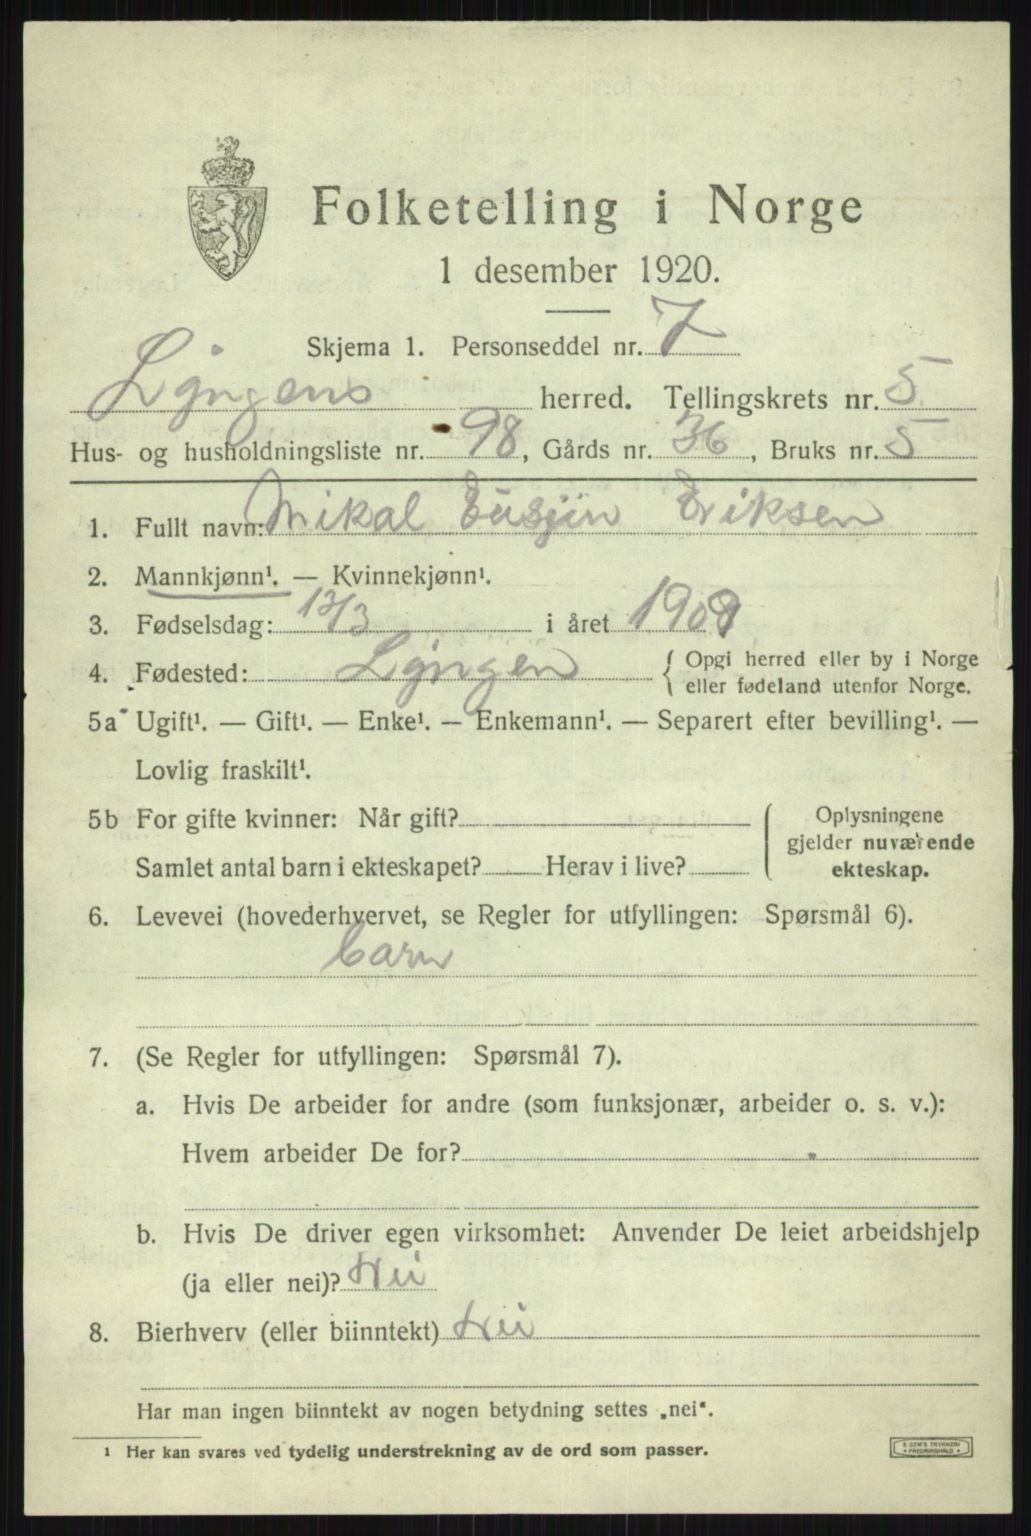 Folketelling i Norge
1 desember 1920.
Skjema 1. Personseddel nr. 7
Lyngens herred. Tellingskrets nr. 5
Hus- og husholdningsliste nr. 98, Gårds nr. 36, Bruks nr. 5
1. Fullt navn: Mikal Eriksen
2. Mannkjønn¹. — Kvinnekjønn¹.
3. Fødselsdag: 13/3 i året 1909
4. Fødested: Lyngen { Opgi herred eller by i Norge
eller fødeland utenfor Norge.
5a Ugift¹. — Gift¹. — Enke¹. — Enkemann¹. — Separert efter bevilling¹. —
Lovlig fraskilt¹.
5b For gifte kvinner: Når gift?
Samlet antal barn i ekteskapet? Herav i live?
{ Oplysningene
gjelder nuværende
ekteskap.
6. Levevei (hovederhvervet, se Regler for utfyllingen: Spørsmål 6).
barn
7. (Se Regler for utfyllingen: Spørsmål 7).
a. Hvis De arbeider for andre (som funksjonær, arbeider o. s. v.):
Hvem arbeider De for?
b. Hvis De driver egen virksomhet: Anvender De leiet arbeidshjelp
(ja eller nei)? Nei
8. Bierhverv (eller biinntekt) Nei
Har man ingen biinntekt av nogen betydning settes „nei“.
¹ Her kan svares ved tydelig understrekning av de ord som passer.
E. SEM'S TRYKKERI
FREDRIKSHALD